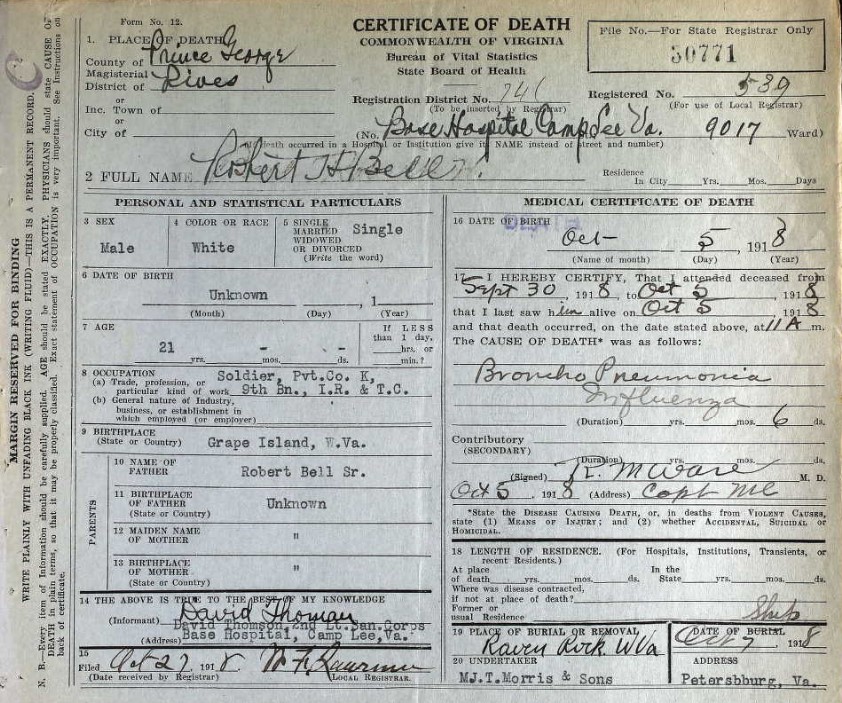 Form No. 12.
CERTIFICATE OF DEATH
COMMONWEALTH OF VIRGINIA
Bureau of Vital Statistics
State Board of Health
File No.—For State Registrar Only
30771
1. PLACE OF DEATH
County of Prince George
Magisterial
District of Rives
or
Inc. Town of
or
City of
Registration District No. 741
(To be inserted by Registrar)
Registered No. 539
(For use of Local Registrar)
(No. Base Hospital Camp Lee Va. 9017 Ward)
(If death occurred in a Hospital or Institution give its NAME instead of street and number)
2 FULL NAME Robert H Bell
Residence
In City Yrs. Mos. Days
PERSONAL AND STATISTICAL PARTICULARS
3 SEX
Male
4 COLOR OR RACE
White
5 SINGLE
MARRIED
WIDOWED
OR DIVORCED
(Write the word)
Single
6 DATE OF BIRTH
Unknown , 1
(Month) (Day) (Year)
7 AGE
21 yrs. - mos. - ds.
If LESS
than 1 day,
hrs. or
min.?
8 OCCUPATION
(a) Trade, profession, or
particular kind of work
Soldier, Pvt.Co. K,
9th Bn., I.R. & T.C.
(b) General nature of Industry,
business, or establishment in
which employed (or employer)
9 BIRTHPLACE
(State or Country) Grape Island, W.Va.
PARENTS
10 NAME OF
FATHER Robert Bell Sr.
11 BIRTHPLACE
OF FATHER
(State or Country) Unknown
12 MAIDEN NAME
OF MOTHER "
13 BIRTHPLACE
OF MOTHER
(State or Country) "
14 THE ABOVE IS TRUE TO THE BEST OF MY KNOWLEDGE
David Thomson
(Informant) David Thomson, 2nd Lt. San. Corps
(Address) Base Hospital, Camp Lee, Va.
15
Filed Oct 27 1918.
(Date received by Registrar) LOCAL REGISTRAR.
MEDICAL CERTIFICATE OF DEATH
16 DATE OF BIRTH
DEATH
Oct- 5, 1918
(Name of month) (Day) (Year)
17 I HEREBY CERTIFY, That I attended deceased from
Sept 30, 1918, to Oct 5, 1918
that I last saw him alive on Oct 5, 1918
and that death occurred, on the date stated above, at 11 A m.
The CAUSE OF DEATH* was as follows:
Broncho Pneumonia
Influenza
(Duration) yrs. mos. 6 ds.
Contributory
(SECONDARY)
(Duration) yrs. mos. ds.
(Signed) R. M Ware M. D.
Oct 5, 1918 (Address) Capt MC
*State the DISEASE CAUSING DEATH, or, in deaths from VIOLENT CAUSES,
state (1) MEANS OF INJURY; and (2) whether ACCIDENTAL, SUICIDAL or
HOMICIDAL.
18 LENGTH OF RESIDENCE. (For Hospitals, Institutions, Transients, or
recent Residents.)
At place
of death yrs. mos. ds.
In the
State yrs. mos. ds.
Where was disease contracted,
if not at place of death?
Former or
usual Residence
Ship
19 PLACE OF BURIAL OR REMOVAL
Raven Rock W Va
DATE OF BURIAL
Oct 7, 1918
20 UNDERTAKER
MJ.T.Morris & Sons
ADDRESS
Petersbburg, Va.
MARGIN RESERVED FOR BINDING
WRITE PLAINLY WITH UNFADING BLACK INK (WRITING FLUID)—THIS IS A PERMANENT RECORD.
N. B.—Every item of Information should be carefully supplied. AGE should be stated EXACTLY. PHYSICIANS should state CAUSE OF
DEATH in plain terms, so that it may be properly classified. Exact statement of OCCUPATION is very important. See Instructions on
back of certificate.